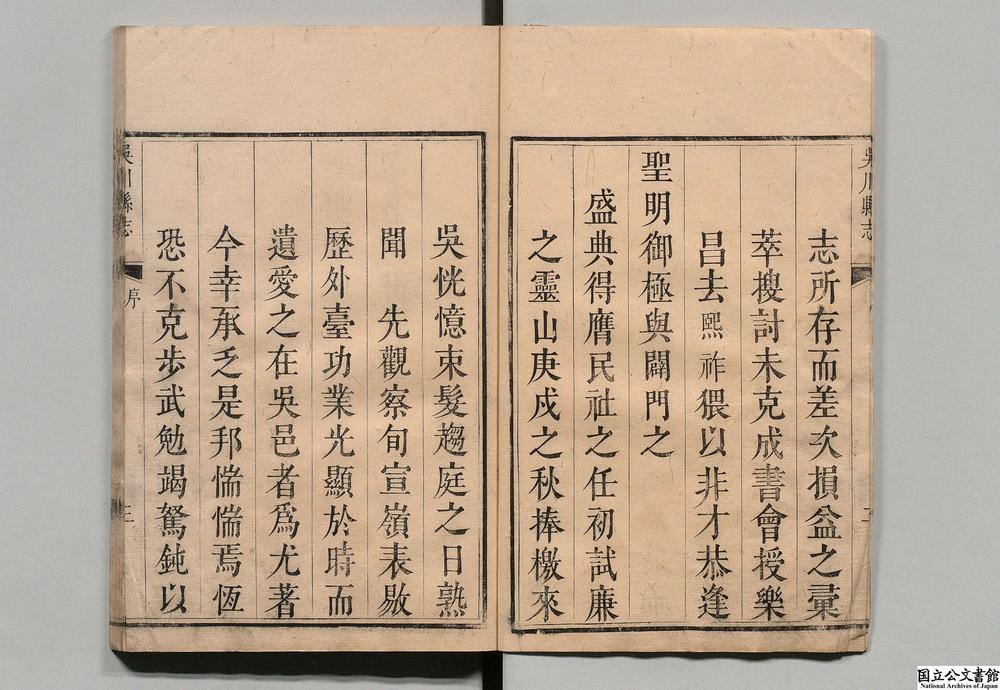 吳川縣志
志所存而差次損益之彙
萃搜討未克成書會授樂
昌去熙祚猥以非才恭逢
聖明御極與闢門之
盛典得膺民社之任初試廉
之靈山庚戌之秋捧檄來
吳恍憶束髮趨庭之日熟
聞　先觀察旬宣嶺表敭
歷外臺功業光顯於時而
遺愛之在吳邑者爲尤著
今幸承乏是邦惴惴焉恆
恐不克步武勉竭駑鈍以
吳川縣志
序
三
国立公文書館
National Archives of Japan